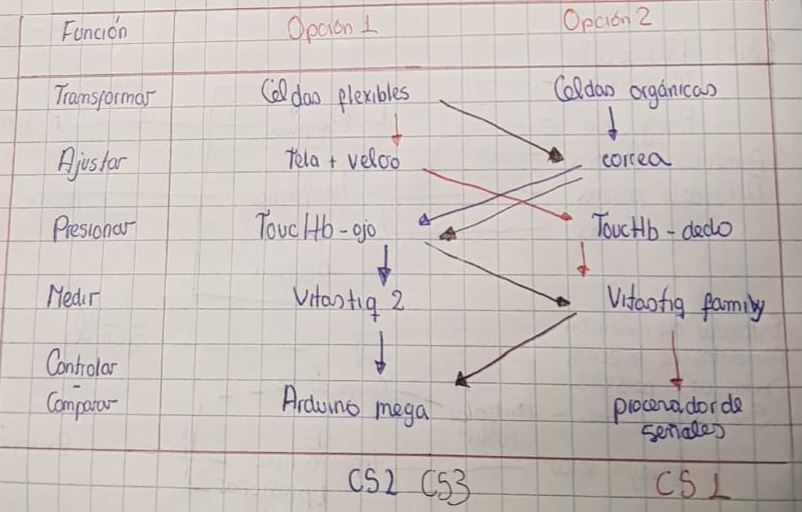 Función Opción 1 Opción 2
Transformar Celdas flexibles Celdas orgánicas
Ajustar Tela + velcro correa
Presionar ToucHb-ojo ToucHb-dedo
Medir Vitastiq 2 Vitastiq family
Controlar
-
Comparar Arduino mega procesador de
señales
CS2 CS3 CS1